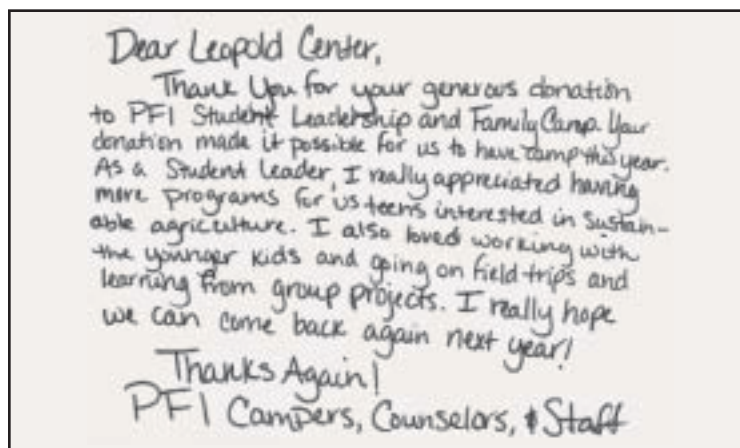 Dear Leopold Center,
Thank You for your generous donation
to PFI Student Leadership and Family Camp. Your
donation made it possible for us to have camp this year.
As a Student Leader, I really appreciated having
more programs for us teens interested in sustain-
able agriculture. I also loved working with
the younger kids and going on field trips and
learning from group projects. I really hope
we can come back again next year!
Thanks Again!
PFI Campers, Counselors, & Staff